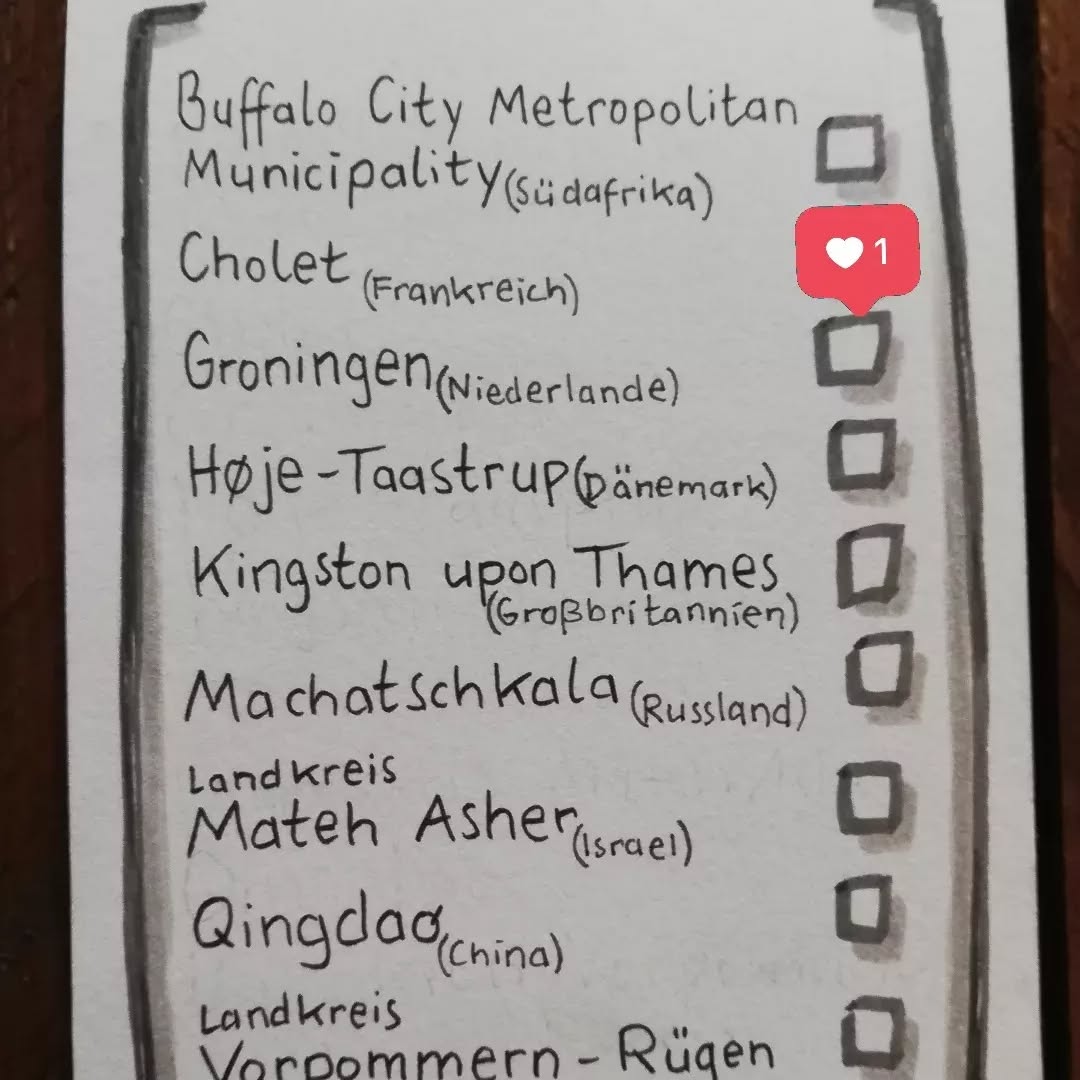 Buffalo City Metropolitan
Municipality (Südafrika)
Cholet (Frankreich)
1
Groningen (Niederlande)
Høje-Taastrup (Dänemark)
Kingston upon Thames
(Großbritannien)
Machatschkala (Russland)
Landkreis
Mateh Asher (Israel)
Qingdao (China)
Landkreis
Vorpommern-Rügen